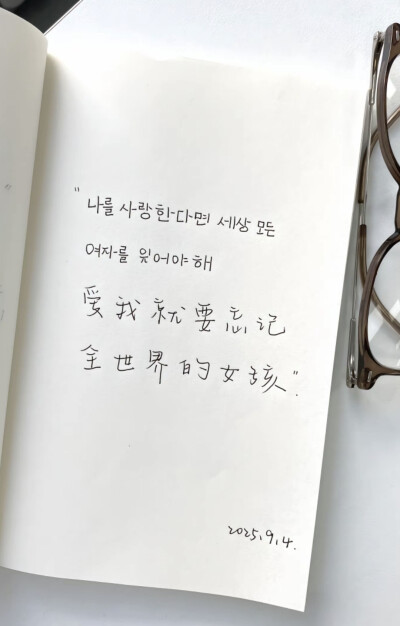 "나를 사랑한다면 세상 모든
여자를 잊어야해
爱我就要忘记
全世界的女孩".
2025.9.4.